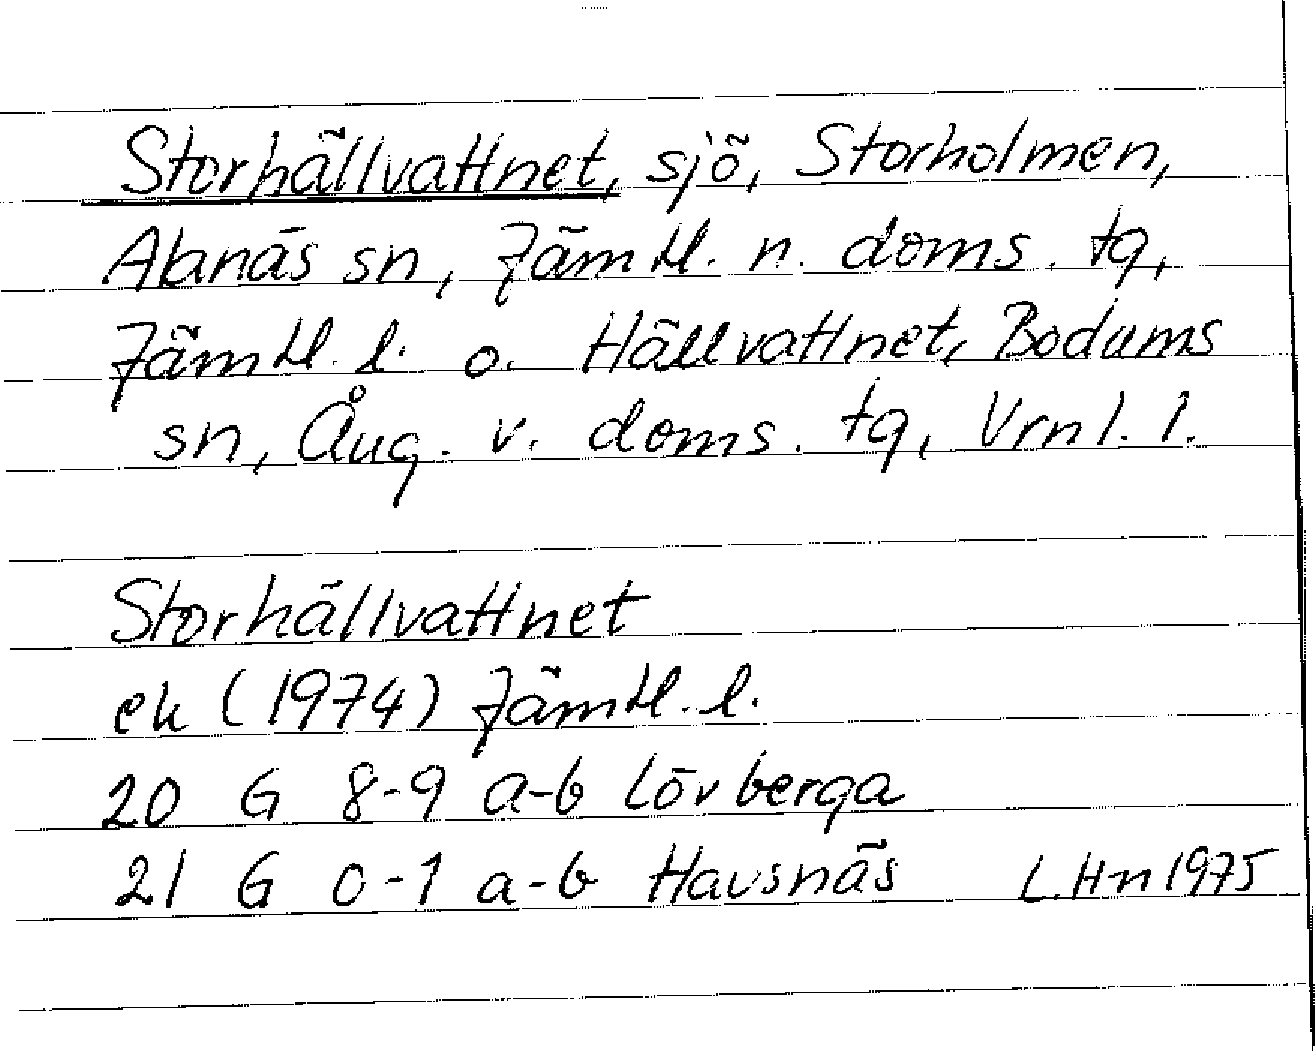 Storhällvattnet, sjö, Storholmen,
Alanäs sn, Jämtl. n. doms. tg,
Jämtl. l. o. Hällvattnet, Bodums
sn, Ång. v. doms. tg, Vrnl. l.
Storhällvattnet
ek (1974) Jämtl. l.
20 G 8-9 a-b Lövberga
21 G 0-1 a-b Havsnäs L.Hn 1975